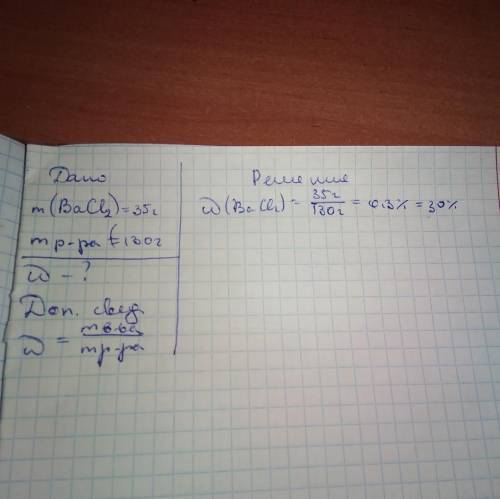 Дано
m(BaCl₂)=35г
mр-ра=130г
ω - ?
Доп. свед
ω = mв-ва / mр-ра
Решение
ω(BaCl₂) = 35г / 130г = 0.3% = 30%